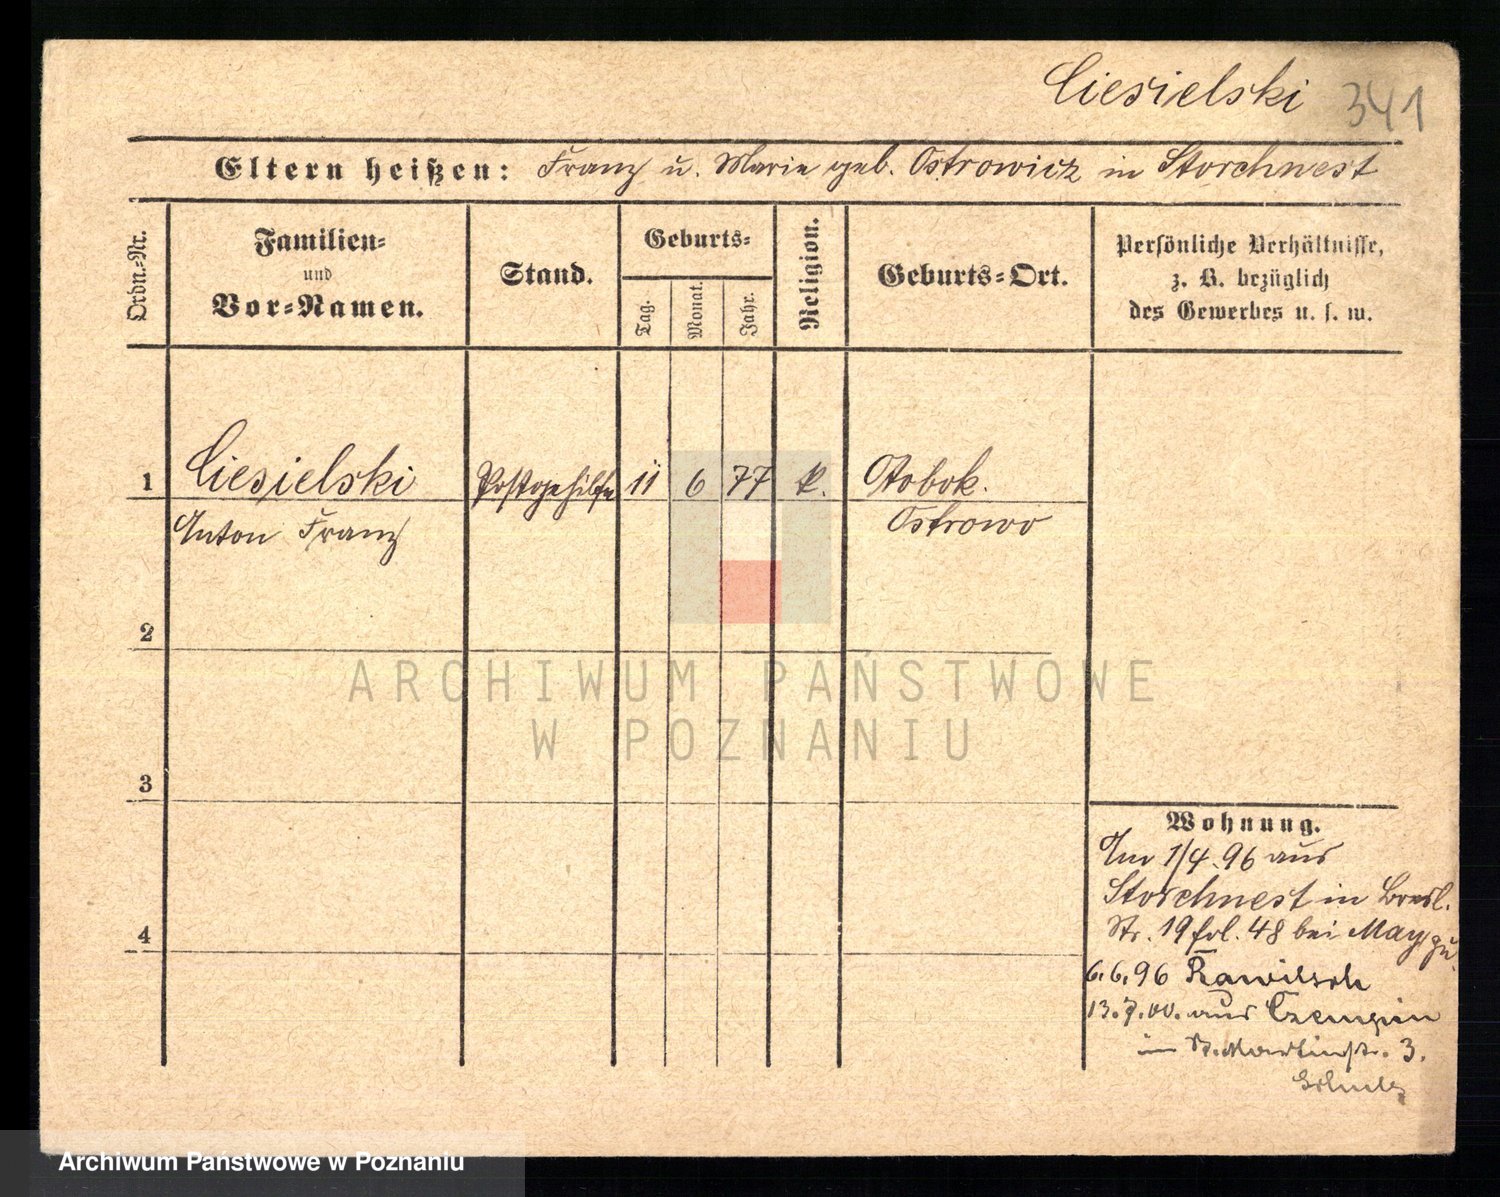 Ciesielski 341
Eltern heißen: Franz u. Marie geb. Ostrowicz in Storchnest
Ordn.-Nr.
Familien-
und
Vor-Namen.
Stand.
Geburts-
Tag.
Monat.
Jahr.
Religion.
Geburts-Ort.
Persönliche Verhältnisse,
z. B. bezüglich
des Gewerbes u. s. w.
1 Ciesielski Postgehilfe 11 6 77 k. Otobok.
Anton Franz Ostrowo
2
3
4
Wohnung.
Am 1/4.96 aus
Storchnest in Bresl.
Str. 19 fol. 48 bei May zu
6.6.96 Rawitsch
13.7.00. aus Czempin
in St. Martinstr. 3.
ARCHIWUM PAŃSTWOWE
W POZNANIU
Archiwum Państwowe w Poznaniu